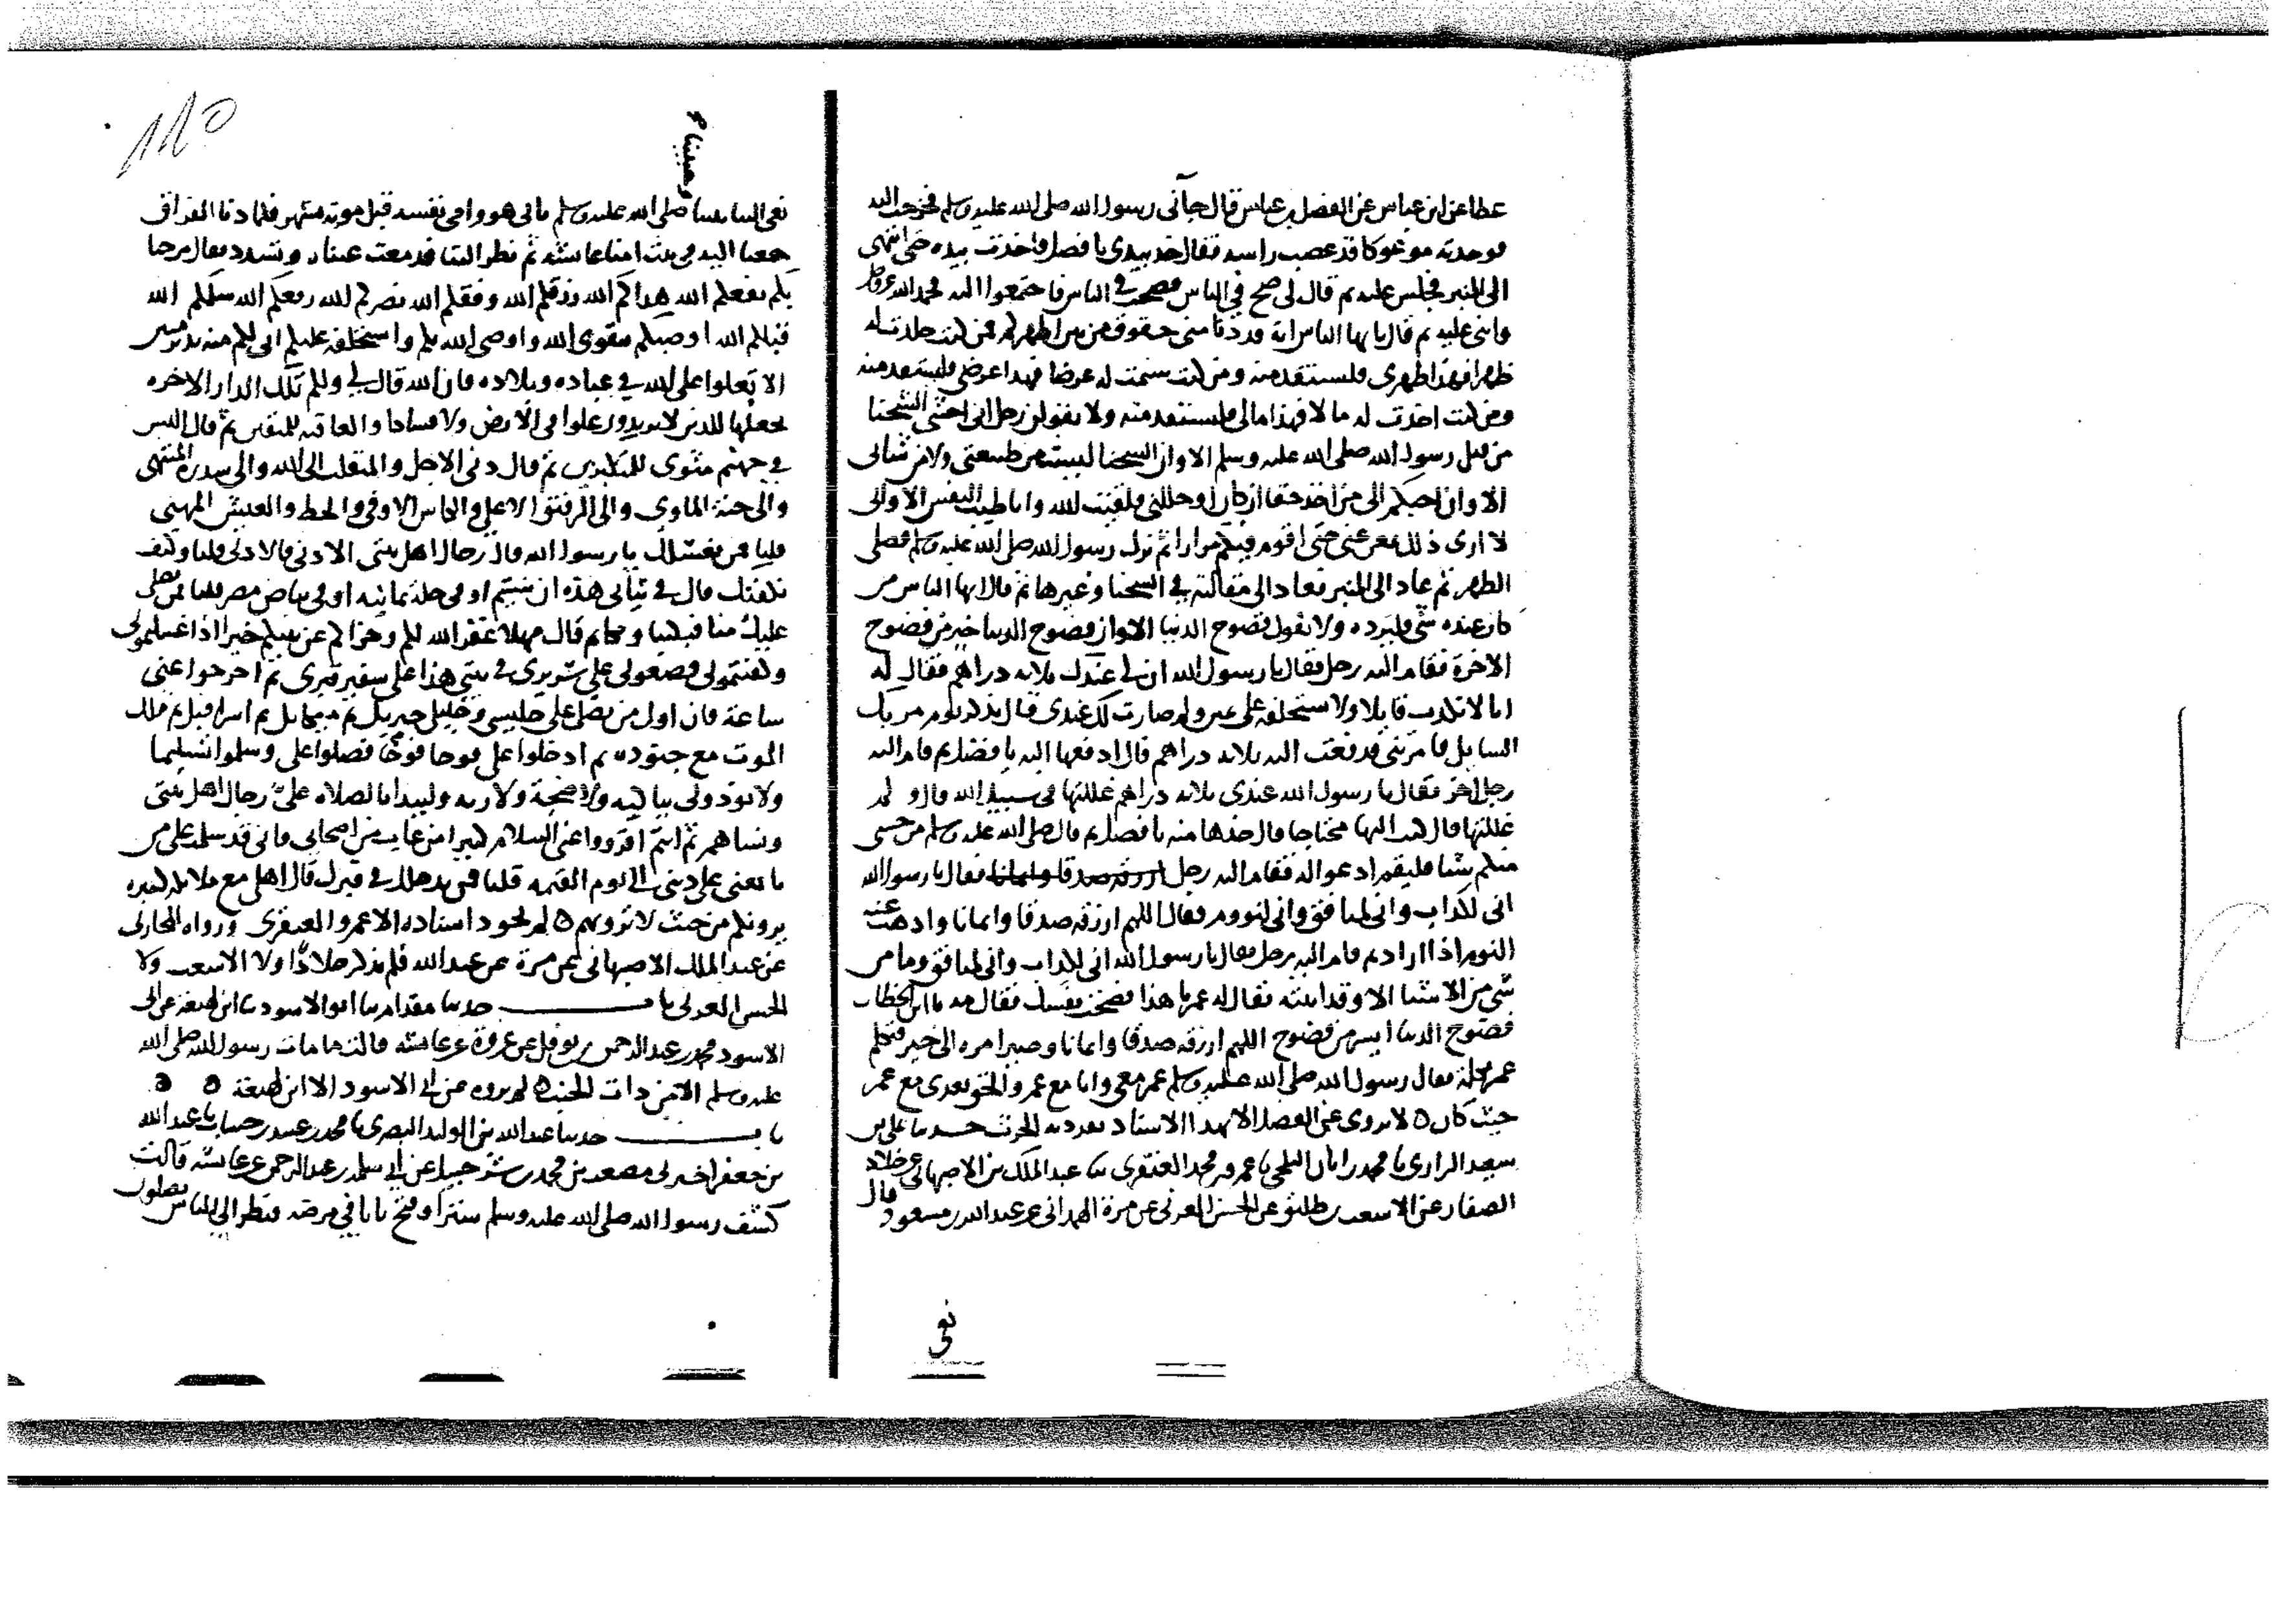 عطا عن ابن عباس عن الفضل بن عباس قال جآنى رسول الله صلى الله عليه وسلم فخرجت اليه
فوجدته موعوكا قد عصب راسه فقال خذ بيدي يا فضل فاخذت بيده حتى انتهى
الى المنبر فجلس عليه ثم قال لى صح في الناس فصحت في الناس فاجتمعوا اليه فحمد الله عز وجل
واثنى عليه ثم قال يا ايها الناس انه قد دنا منى حقوق من بين اظهركم فمن كنت جلدت له
ظهرا فهذا ظهرى فليستقد منه ومن كنت شتمت له عرضا فهذا عرضي فليستقد منه
ومن كنت اخذت له مالا فهذا مالى فليستقد منه ولا يقولن رجل انى اخشى الشحنا
من قبل رسول الله صلى الله عليه وسلم الا وان الشحنا ليست من طبيعتى ولا من شانى
الا وان احبكم الى من اخذ حقا ان كان او حللنى فلقيت الله وانا طيب النفس الا وانى
لا ارى ذلك مغن عنى حتى اقوم فيكم مرارا ثم نزل رسول الله صلى الله عليه وسلم فصلى
الظهر ثم عاد الى المنبر فعاد الى مقالته في الشحنا وغيرها ثم قال ايها الناس من
كان عنده شي فليرده ولا يقول فضوح الدنيا الا وان فضوح الدنيا خير من فضوح
الاخرة فقام اليه رجل فقال يا رسول الله ان لى عندك ثلاثه دراهم فقال له
اما لا نكذب قايلا ولا نستحلفه على يمين ولم صارت لك عندى قال تذكر يوم مر بك
السايل فامرتنى فدفعت اليه ثلاثه دراهم قال ادفعها اليه يا فضل ثم قام اليه
رجل اخر فقال يا رسول الله عندى ثلاثه دراهم غللتها في سبيل الله قال ولم
غللتها قال كنت اليها محتاجا قال خذها منه يا فضل ثم قال صلى الله عليه وسلم من خشى
منكم شيا فليقم ادعو له فقام اليه رجل ارزقه صدقا وايمانا فقال يا رسول الله
انى لكذاب وانى لمنافق وانى لنووم فقال اللهم ارزقه صدقا وايمانا واذهب عنه
النوم اذا اراد ثم قام اليه رجل فقال يا رسول الله انى لكذاب وانى لمنافق وما من
شي من الاشيا الا وقد اتيته فقال له عمر يا هذا فضحت نفسك فقال مه يا ابن الخطاب
فضوح الدنيا ايسر من فضوح اللهم ارزقه صدقا وايمانا وصير امره الى خير فتكلم
عمر بكلمة فقال رسول الله صلى الله عليه وسلم عمر معى وانا مع عمر والحق بعدى مع عمر
حيث كان ٥ لا يروى عن الفضل الا بهذا الاسناد تفرد به الحرث حدثنا على بن
سعيد الرازى نا محمد بن ابان البلخى نا عمرو بن محمد العنقزى نا عبد الملك بن الاصبهانى عن خلاد
الصفار عن الاشعث بن طليق عن الحسن العرنى عن مرة الهمدانى عن عبد الله بن مسعود قال
نعى
وحبيبنا
١١٥
نعى الينا نبينا صلى الله عليه وسلم بابى هو وامى نفسه قبل موته بشهر فلما دنا الفراق
جمعنا اليه في بيت امنا عائشه ثم نظر الينا فدمعت عيناه وتشدد فقال مرحبا
بكم نفعكم الله هداكم الله رزقكم الله وفقكم الله نصركم الله رفعكم الله سلمكم الله
قبلكم الله اوصيكم بتقوى الله واوصى الله بكم واستخلفه عليكم انى لكم منه نذير مبين
الا تعلوا على الله في عباده وبلاده فان الله قال لى ولكم تلك الدار الاخره
نجعلها للذين لا يريدون علوا في الارض ولا فسادا والعاقبه للمتقين ثم قال اليس
في جهنم مثوى للمتكبرين ثم قال دنى الاجل والمنقلب الى الله والى سدرة المنتهى
والى جنة الماوى والى الرفيق الاعلى والكاس الاوفى والحظ والعيش المهنى
قلنا فمن يغسلك يا رسول الله قال رجال اهل بيتى الادنى فالادنى قلنا وكيف
نكفنك قال في ثيابى هذه ان شيتم او في حلة يمانيه او في بياض مصر قلنا فمن يصلى
عليك منا فبكينا وبكا ثم قال مهلا غفر الله لكم وجزاكم عن نبيكم خيرا اذا غسلتمونى
وكفنتمونى فضعونى على سريرى في بيتى هذا على شفير قبرى ثم اخرجوا عنى
ساعة فان اول من يصلى على جليسى وخليلى جبريل ثم ميكايل ثم اسرافيل ثم ملك
الموت مع جنوده ثم ادخلوا على فوجا فوجا فصلوا على وسلموا تسليما
ولا توذونى بباكيه ولا ضجة ولا رنه وليبدا بالصلاه على رجال اهل بيتى
ونساهم ثم انتم اقرووا عنى السلام كثيرا من غاب من اصحابى فانى قد سلمت على من
تابعنى على دينى الى يوم القيمه قلنا فمن يدخلك في قبرك قال اهلى مع ملايكه كثيره
يرونكم من حيث لا ترونهم ٥ لم يجود اسناده الا عمرو العنقزى ورواه المحاربى
عن عبد الملك الاصبهانى عن مرة عن عبد الله فلم يذكر خلادا ولا الاشعث ولا
الحسن العرنى نا حدثنا مقدام نا ابو الاسود نا ابن لهيعة عن ابى
الاسود محمد بن عبد الرحمن بن نوفل عن عروة عن عائشه قالت ما مات رسول الله صلى الله
عليه وسلم الا من ذات الجنب ٥ لم يروه عن ابى الاسود الا ابن لهيعة ٥ ٥
نا حدثنا عبد الله بن الوليد البصرى نا محمد بن عبيد بن حساب نا عبد الله
بن جعفر اخبرنى مصعب بن محمد بن شرحبيل عن ابى سلمه بن عبد الرحمن عن عائشه قالت
كشف رسول الله صلى الله عليه وسلم سترا وفتح بابا في مرضه فنظر الى الناس يصلون